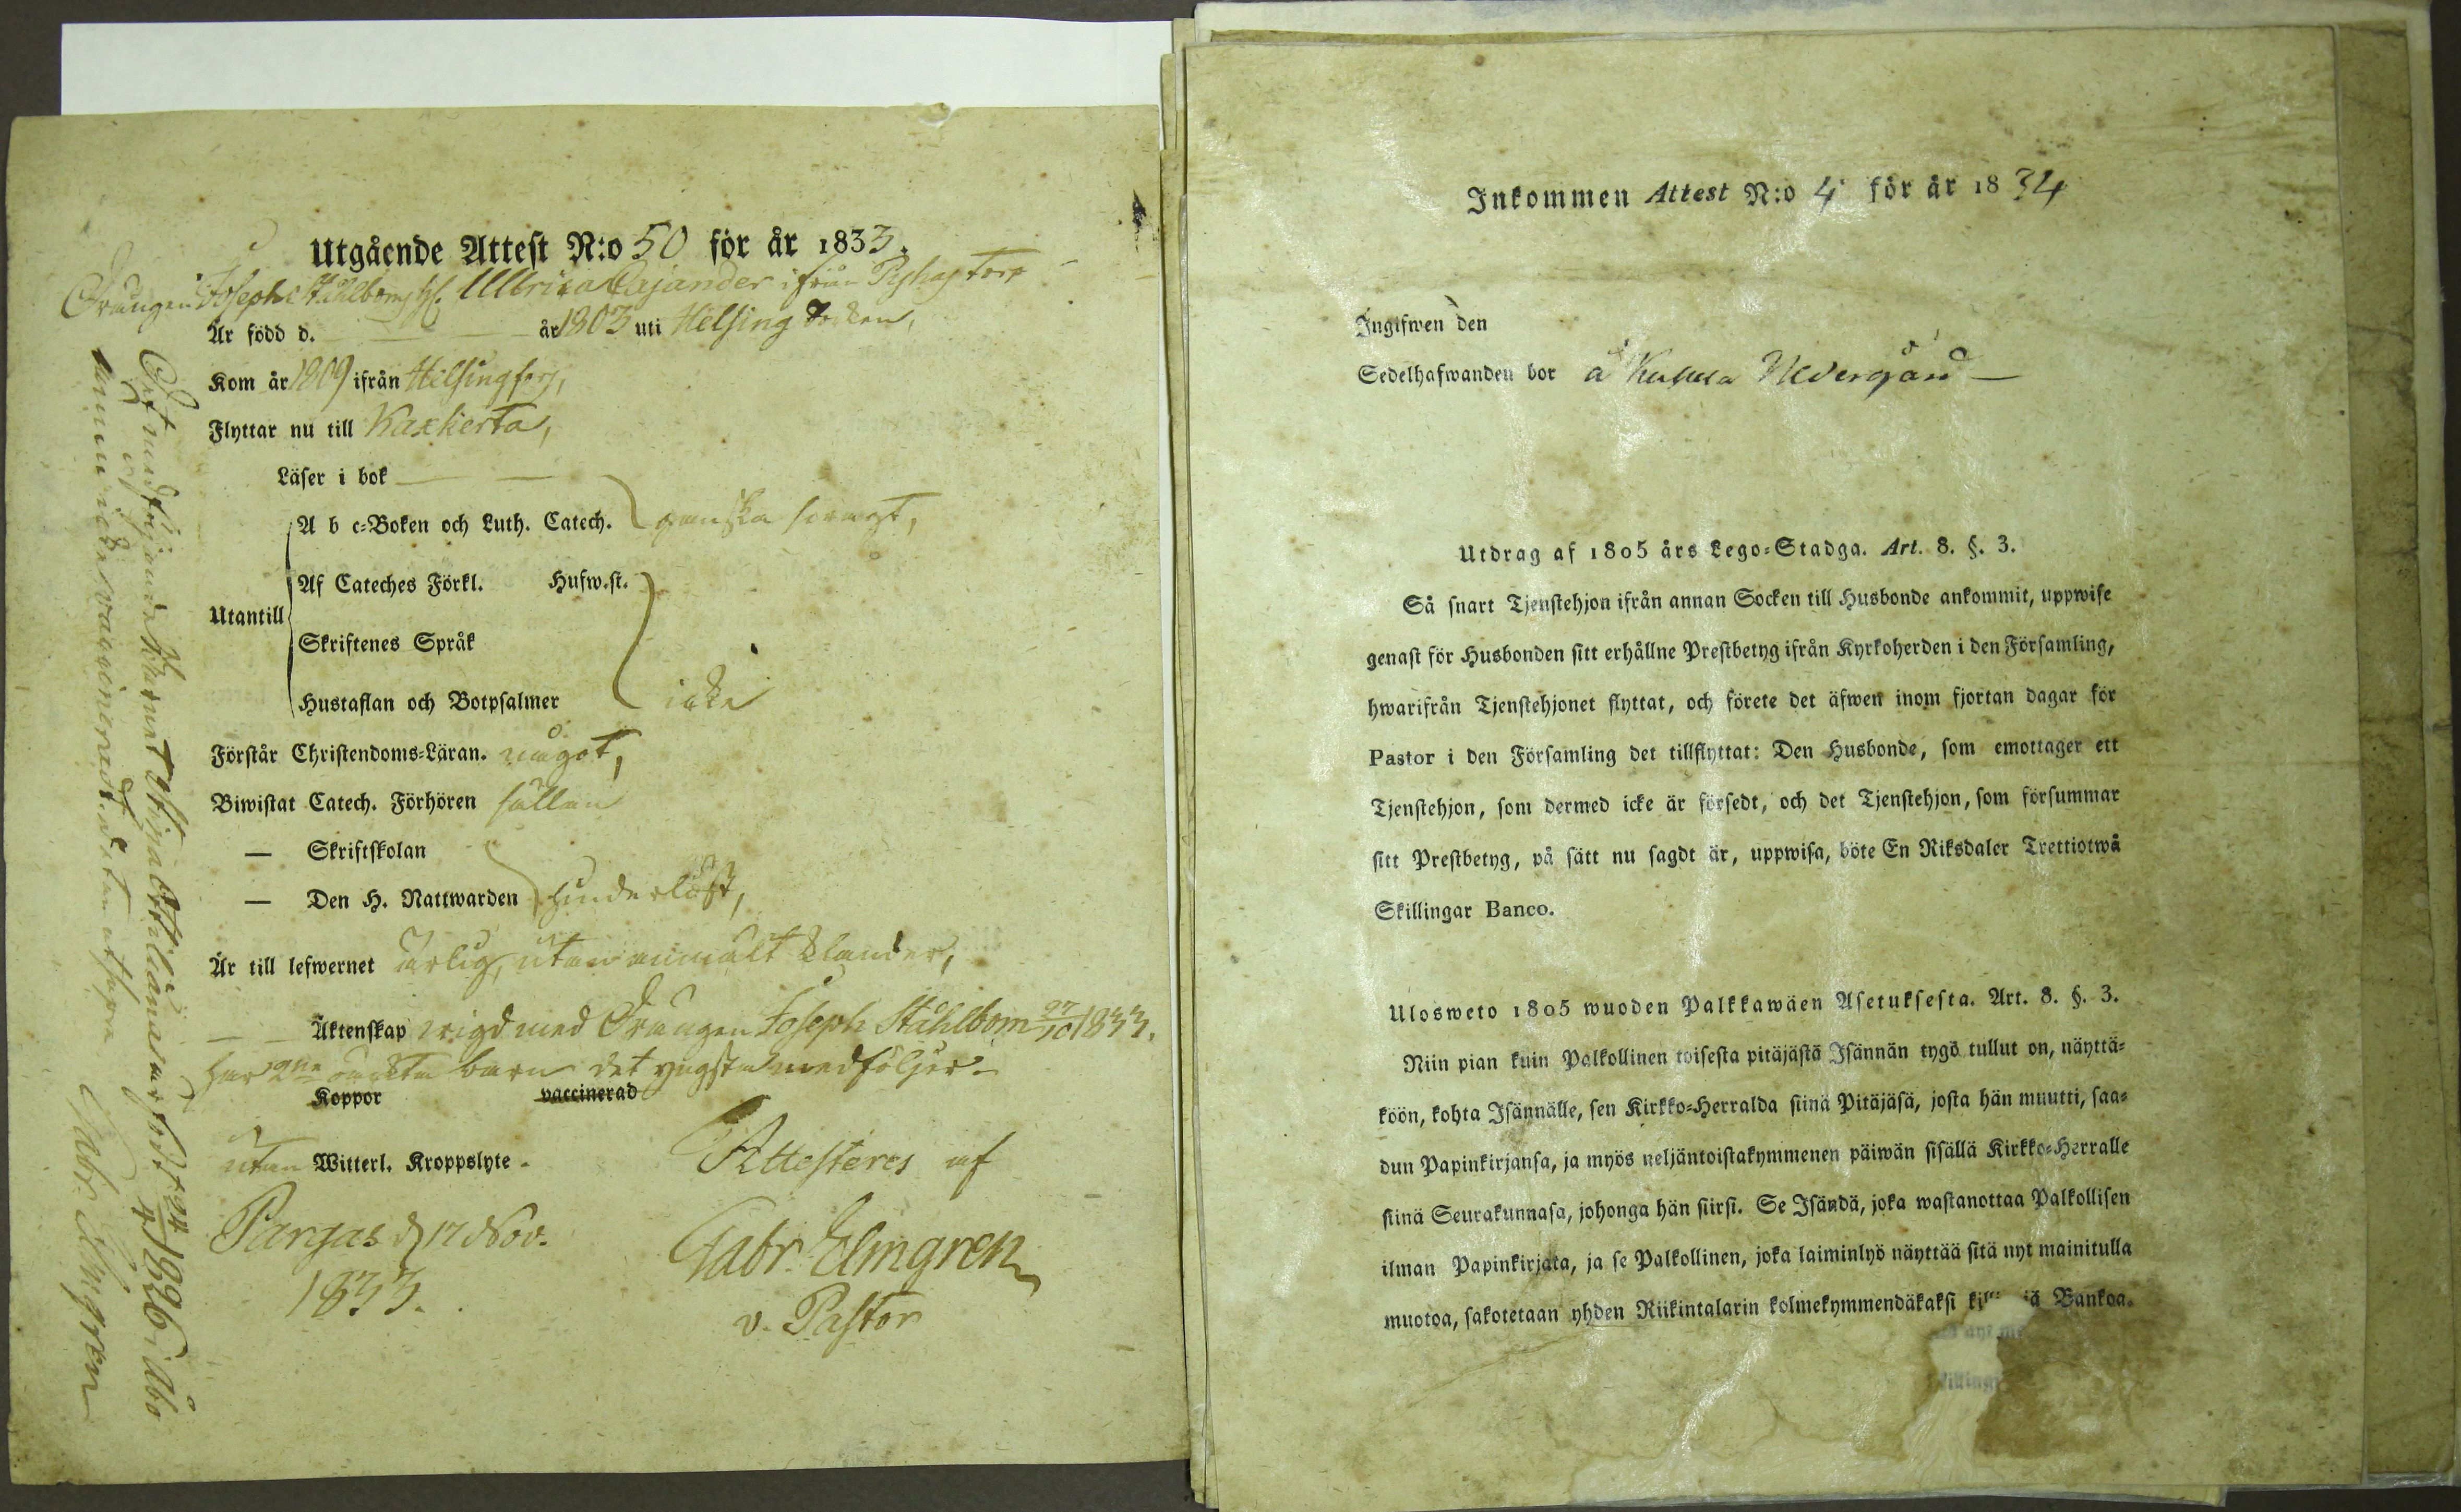 Utgående Attest N:o 50 för år 1833.
Drängen Joseph Ståhlboms h. Ulbrica Cajander ifrån torp
Är född d. — — år 1803 uti Helsing Socken,
Kom år 1809 ifrån Helsingfors,
Flyttar nu till Kaxkerta,
Läser i bok — —
A b c-Boken och Luth. Catech. ganska swagt,
Af Cateches Förkl. Hufw.st.
Utantill
Skriftenes Språk
Hustaflan och Botpsalmer icke
Förstår Christendoms-Läran. något,
Biwistat Catech. Förhören sällan
— Skriftskolan
— Den H. Nattwarden hinderlöst,
Är till lefwernet ärlig, utan anmält klander,
— — Äktenskap wigd med Drängen Joseph Ståhlbom 27/10 1833.
har 2ne oäckta barn det yngsta medföljer.
Koppor vaccinerad
utan Witterl. Kroppslyte.
Attesteres af
Pargas d. 17 Nov.
1833.
Gabr. Elmgren
v. Pastor
Det medföljande Barnet Ottiliana är född 24/4 1826 i Åbo
vaccinerad, utan attest
Gabr. Elmgren
Inkommen Attest N:o 4 för år 1834
Ingifwen den
Sedelhafwanden bor å Nedergård —
Utdrag af 1805 års Lego-Stadga. Art. 8. §. 3.
Så snart Tjenstehjon ifrån annan Socken till Husbonde ankommit, uppwise
genast för Husbonden sitt erhållne Prestbetyg ifrån Kyrkoherden i den Församling,
hwarifrån Tjenstehjonet flyttat, och förete det äfwen inom fjortan dagar för
Pastor i den Församling det tillflyttat: Den Husbonde, som emottager ett
Tjenstehjon, som dermed icke är försedt, och det Tjenstehjon, som försummar
sitt Prestbetyg, på sätt nu sagdt är, uppwisa, böte En Riksdaler Trettiotwå
Skillingar Banco.
Ulosweto 1805 wuoden Palkkawäen Asetuksesta. Art. 8. §. 3.
Niin pian kuin Palkollinen toisesta pitäjästä Isännän tygö tullut on, näyttä-
köön, kohta Isännälle, sen Kirkko-Herralda siinä Pitäjäsä, josta hän muutti, saa-
dun Papinkirjansa, ja myös neljäntoistakymmenen päiwän sisällä Kirkko-Herralle
siinä Seurakunnasa, johonga hän siirsi. Se Isändä, joka wastanottaa Palkollisen
ilman Papinkirjata, ja se Palkollinen, joka laiminlyö näyttää sitä nyt mainitulla
muotoa, sakotetaan yhden Riikintalarin kolmekymmendäkaksi Bankoa.